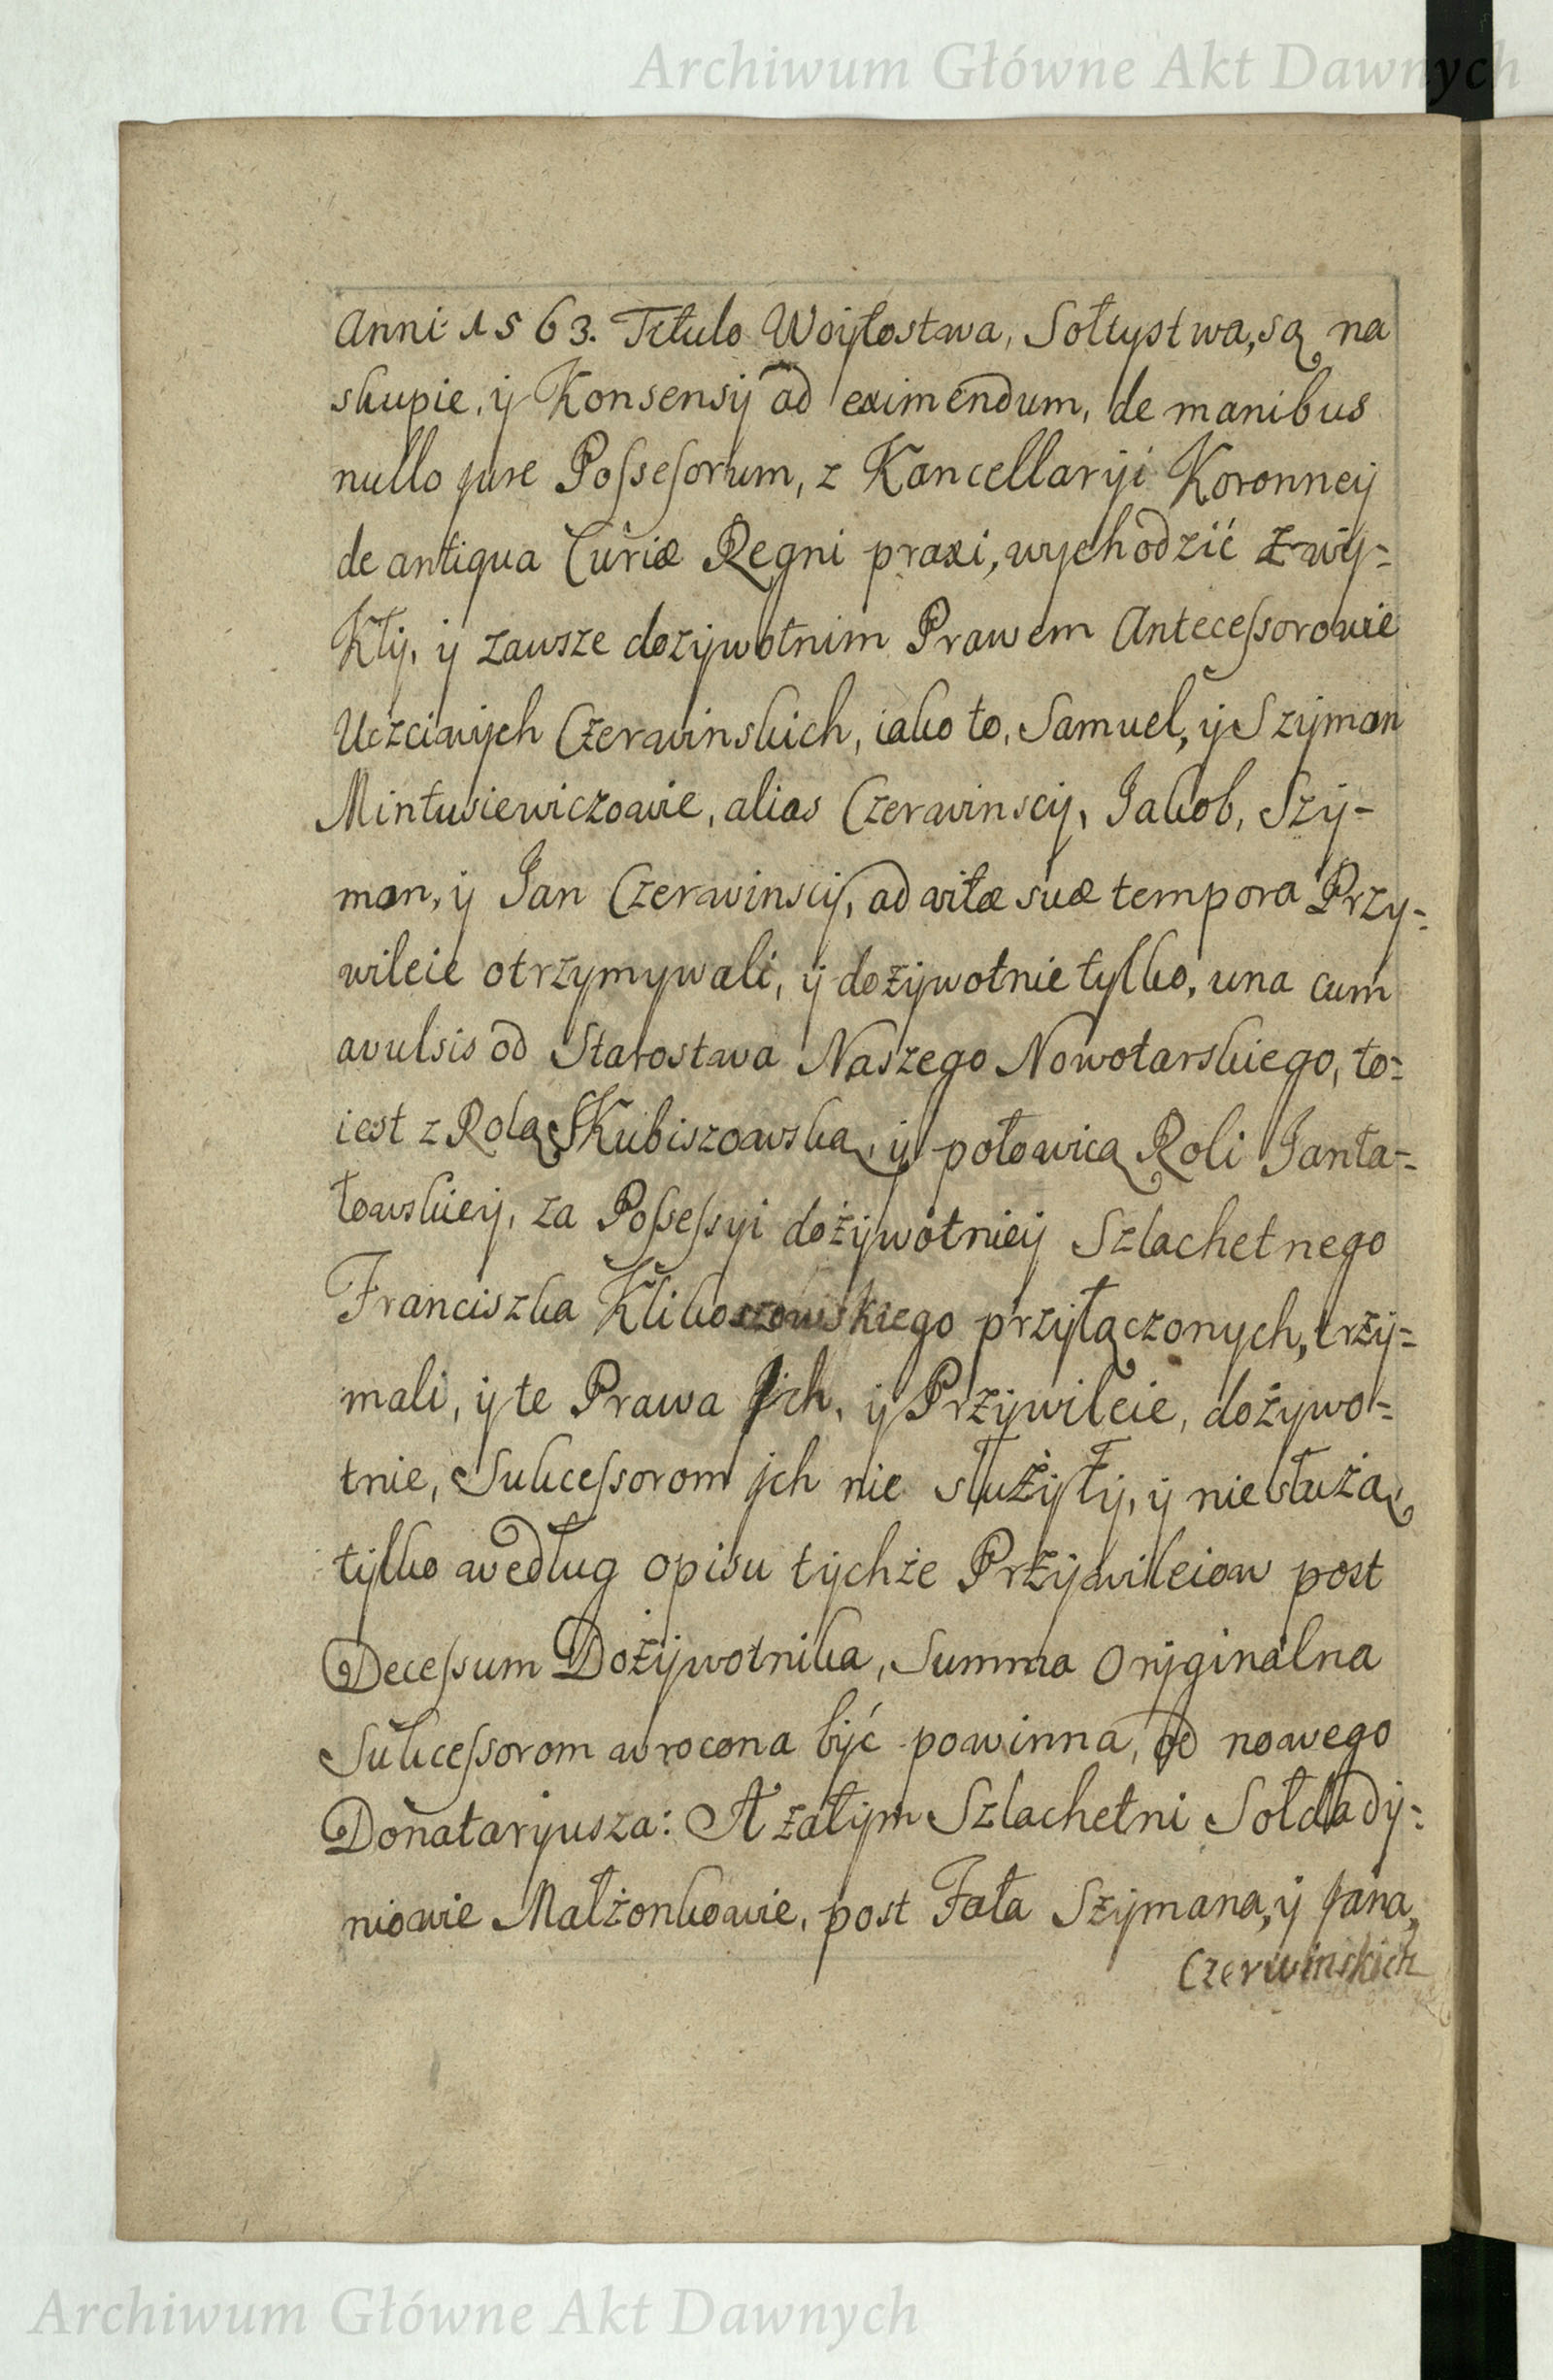 Archiwum Główne Akt Dawnych
Anni 1563. Titulo Woytostwa, Sołtystwa, są na
skupie, ÿ Konsensÿ ad eximendum, de manibus
nullo jure Possesorum, z Kancellaryi Koronneÿ
de antiqua Curiæ Regni praxi, wychodzić zwÿ=
kłÿ, ÿ zawsze dożÿwotnim Prawem Antecessorowie
Uczciwÿch Czerwinskich, iako to, Samuel, ÿ Szÿmon
Mintusiewiczowie, alias Czerwinscÿ, Jakob, Szÿ-
mon, ÿ Jan Czerwinscÿ, ad vitæ suæ tempora Przy=
wileie otrzymywali, ÿ dożÿwotnie tylko, una cum
avulsis od Starostwa Naszego Nowotarskiego, to=
iest z Rolą Kubiszowską, ÿ połowicą Roli Janta=
łowskieÿ, za Possessyi dożÿwotnieÿ Szlachetnego
Franciszka Klikoszowskiego przÿłączonych, trzÿ=
mali, ÿ te Prawa Jch, ÿ Przÿwileie, dożywo=
tnie, Sukcessorom jch nie służÿłÿ, ÿ nie służą,
tÿlko według opisu tÿchże Przÿwileiow post
Decessum Dożÿwotnika, Summa Orÿginalna
Sukcessorom wrocona bÿć powinna, od nowego
Donatarÿusza: A zatÿm Szlachetni Sołdadÿ=
niowie Małżonkowie, post Fata Szÿmana, ÿ Jana,
Czerwinskich
Archiwum Główne Akt Dawnych